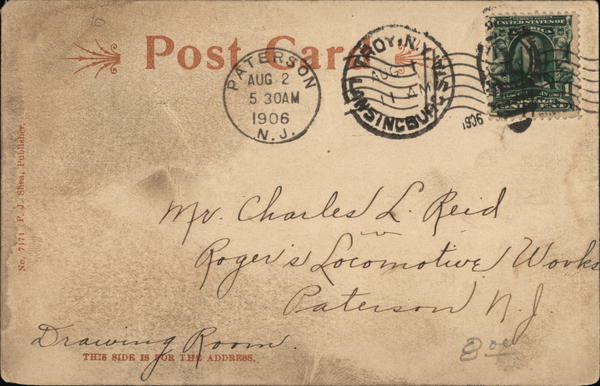 Post Card
PATERSON
AUG 2
5 30 AM
1906
N. J.
TROY, N.Y. STA.
AUG 1
11 AM
LANSINGBURG
1906
UNITED STATES OF AMERICA
1
Mr. Charles L. Reid
Roger's Locomotive Works
Paterson N J.
Drawing Room.
THIS SIDE IS FOR THE ADDRESS.
No. 7171 P. J. Shea, Publisher.